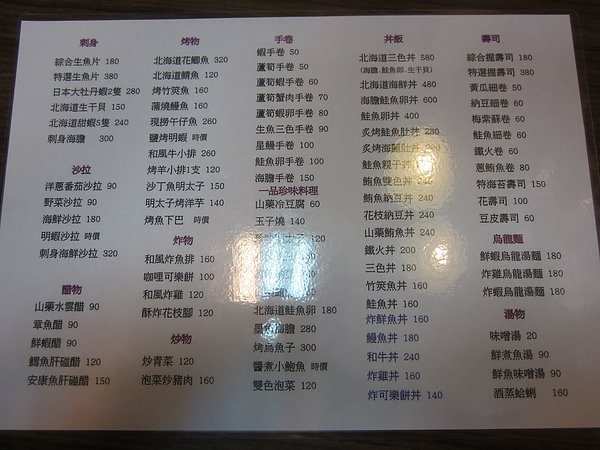 刺身
綜合生魚片 180
特選生魚片 380
日本大牡丹蝦2隻 280
北海道生干貝 150
北海道甜蝦5隻 240
刺身海膽 300
沙拉
洋蔥蕃茄沙拉 90
野菜沙拉 90
海鮮沙拉 180
明蝦沙拉 時價
刺身海鮮沙拉 320
醋物
山藥水雲醋 90
章魚醋 90
鮮蝦醋 90
鱈魚肝碰醋 120
安康魚肝碰醋 150
烤物
北海道花鯽魚 320
北海道鯖魚 120
烤竹筴魚 160
蒲燒鰻魚 160
現撈午仔魚 260
鹽烤明蝦 時價
和風牛小排 260
烤羊小排1支 120
沙丁魚明太子 150
明太子烤洋芋 140
烤魚下巴 時價
炸物
和風炸魚排 160
咖哩可樂餅 100
和風炸雞 120
酥炸花枝腳 120
炒物
炒青菜 120
泡菜炒豬肉 160
手卷
蝦手卷 50
蘆筍手卷 50
蘆筍蝦手卷 60
蘆筍蟹肉手卷 70
蘆筍蝦卵手卷 80
生魚三色手卷 90
星鰻手卷 100
鮭魚卵手卷 100
海膽手卷 150
一品珍味料理
山藥冷豆腐 60
玉子燒 140
120
北海道鮭魚卵 180
墨魚海膽 280
烤烏魚子 300
醬煮小鮑魚 時價
雙色泡菜 120
丼飯
北海道三色丼 580
(海膽,鮭魚卵,生干貝)
北海道海鮮丼 480
海膽鮭魚卵丼 600
鮭魚卵丼 400
炙烤鮭魚肚丼 240
鮭魚親子丼
鮪魚雙色丼 240
鮪魚納豆丼 240
花枝納豆丼 240
山藥鮪魚丼 240
鐵火丼 200
三色丼 180
竹筴魚丼 160
鮭魚丼 160
炸鮮魚丼 160
鰻魚丼 180
和牛丼 240
炸雞丼 160
炸可樂餅丼 140
壽司
綜合握壽司 180
特選握壽司 380
黃瓜細卷 50
納豆細卷 60
梅紫蘇卷 60
鮭魚細卷 60
鐵火卷 60
蔥鮪魚卷 80
特海苔壽司 150
花壽司 100
豆皮壽司 60
烏龍麵
鮮蝦烏龍湯麵 180
炸雞烏龍湯麵 180
炸蝦烏龍湯麵 180
湯物
味噌湯 20
鮮煮魚湯 90
鮮魚味噌湯 90
酒蒸蛤蜊 160